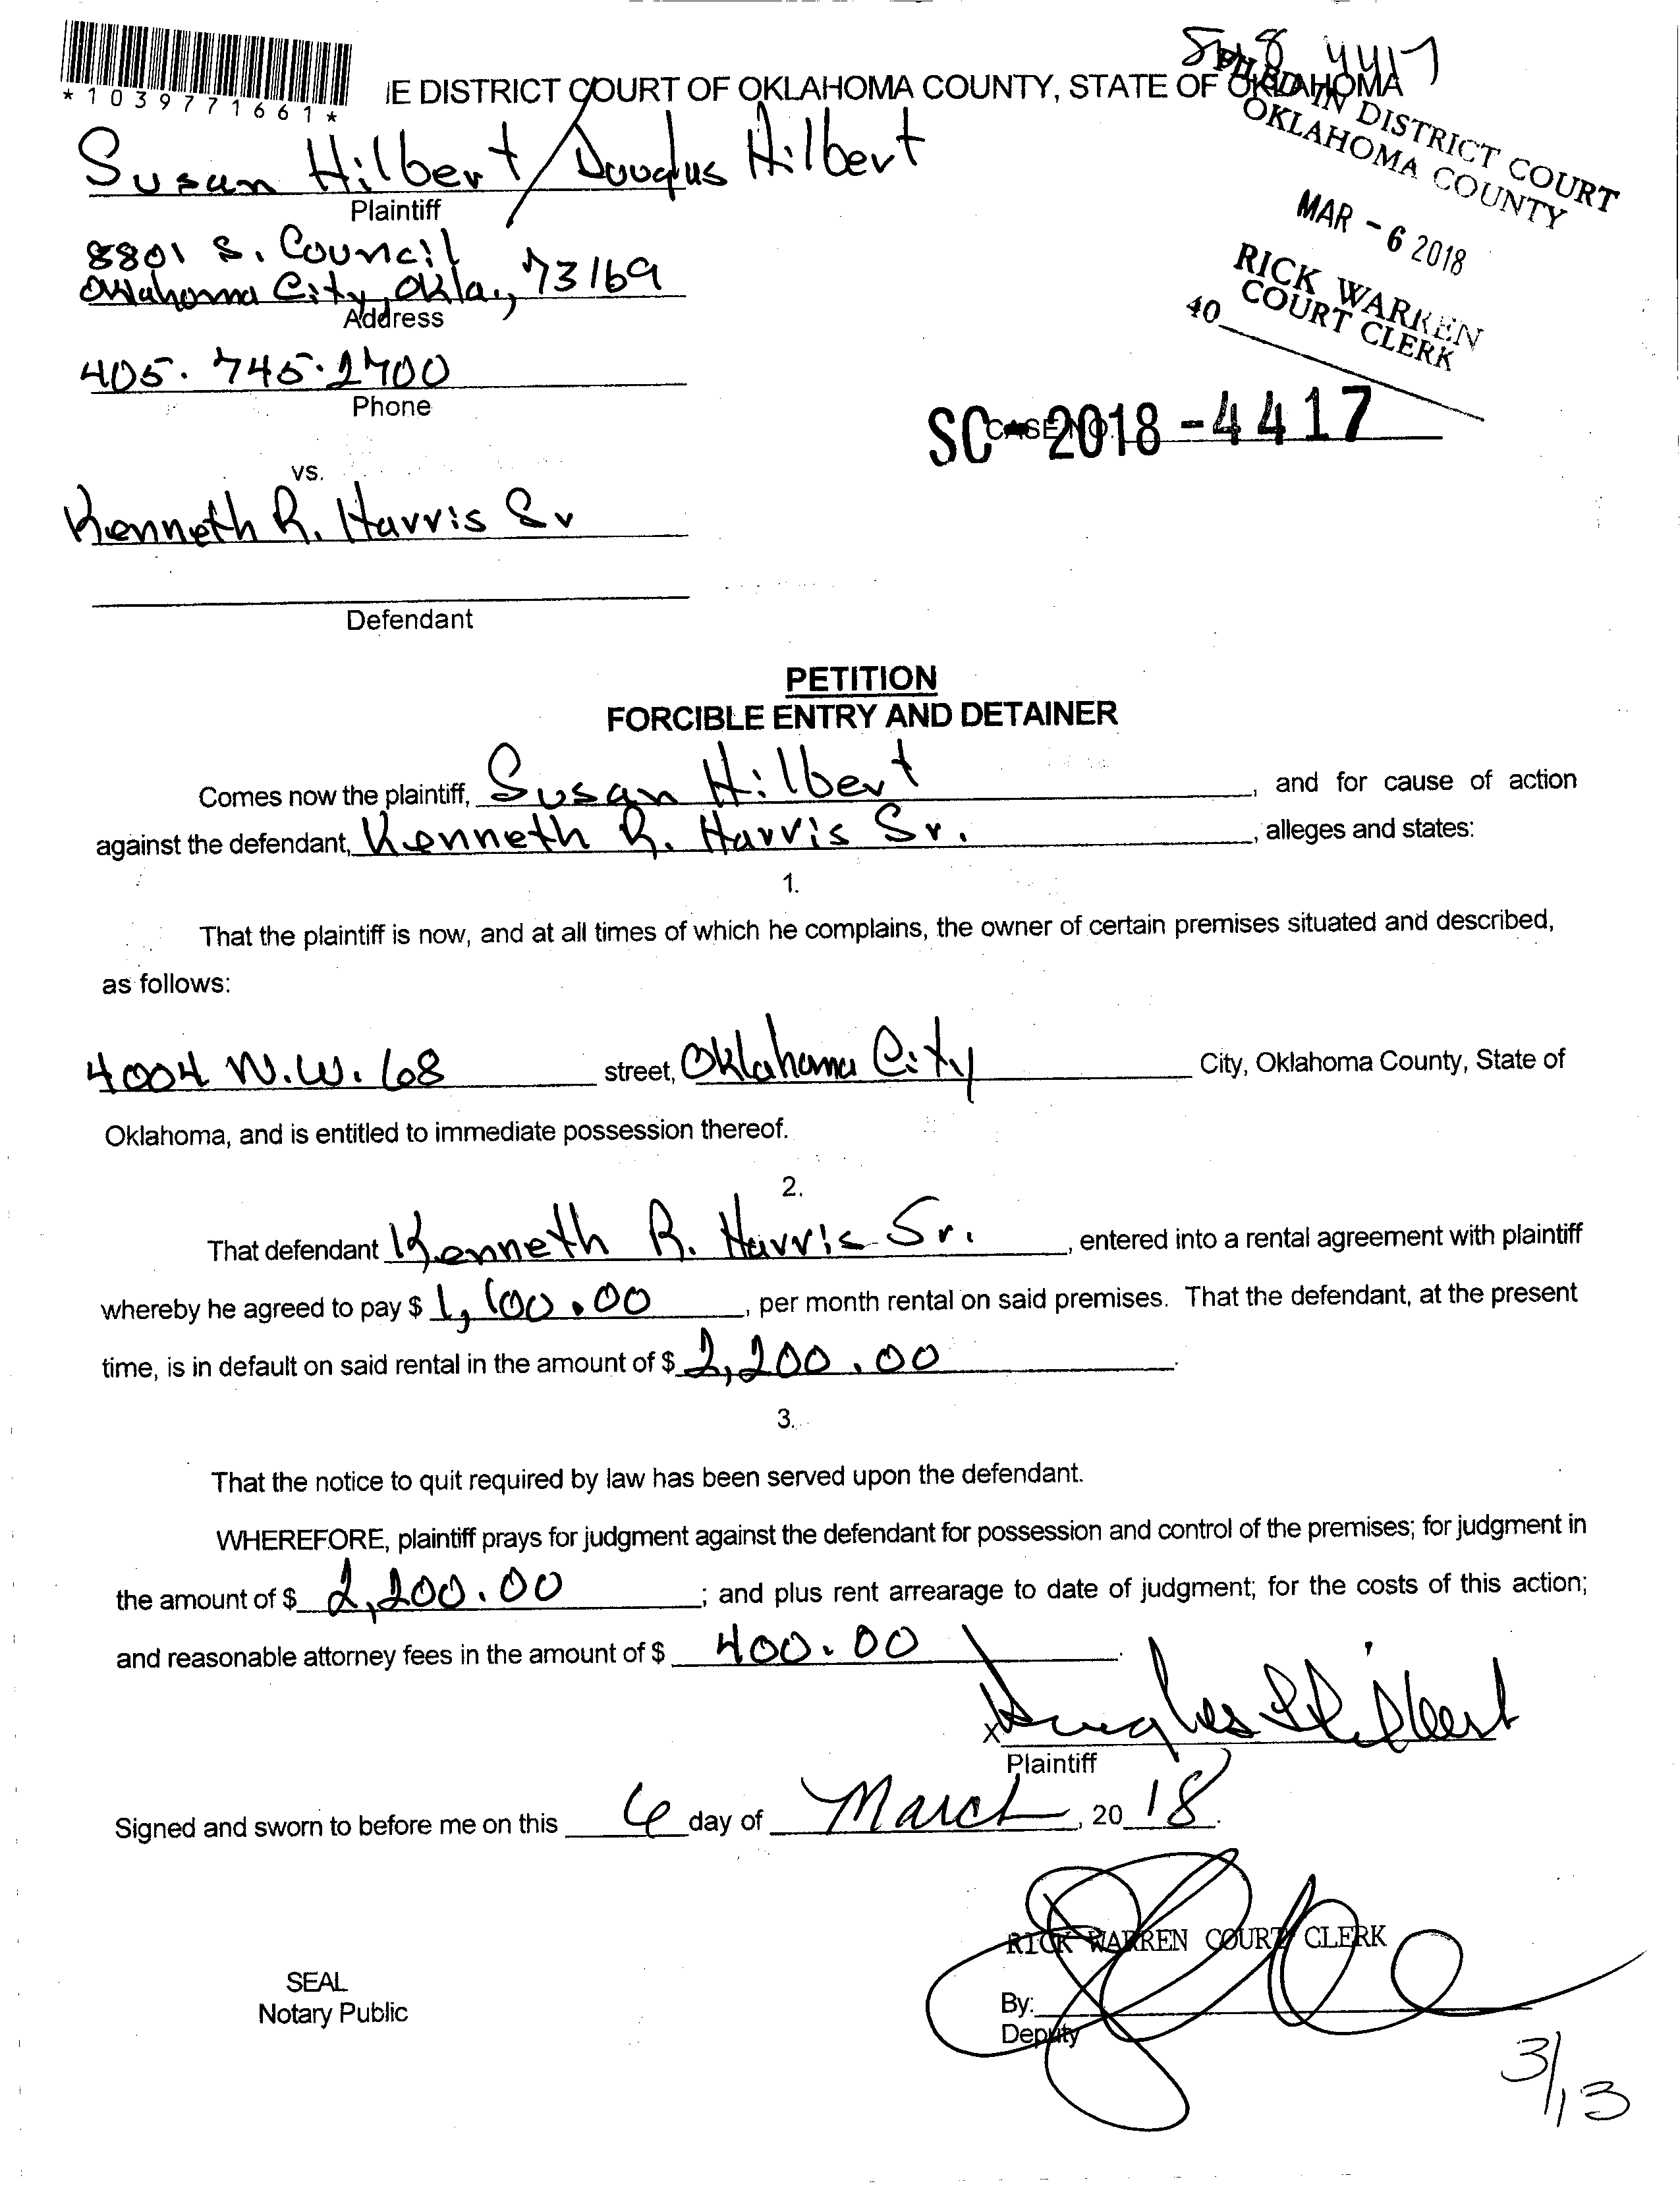 *1039771661*
4417
E DISTRICT COURT OF OKLAHOMA COUNTY, STATE OF OKLAHOMA
FILED IN DISTRICT COURT
OKLAHOMA COUNTY
MAR -6 2018
RICK WARREN
COURT CLERK
40
Susan Hilbert / Douglas Hilbert
Plaintiff
8801 S. Council
Oklahoma City, Okla., 73169
Address
405. 745.2700
Phone
CASE NO.
SC-2018-4417
vs.
Kenneth R. Harris Sr
Defendant
PETITION
FORCIBLE ENTRY AND DETAINER
Comes now the plaintiff, Susan Hilbert, and for cause of action
against the defendant, Kenneth R. Harris Sr., alleges and states:
1.
That the plaintiff is now, and at all times of which he complains, the owner of certain premises situated and described,
as follows:
4004 N.W. 68 street, Oklahoma City City, Oklahoma County, State of
Oklahoma, and is entitled to immediate possession thereof.
2.
That defendant Kenneth R. Harris Sr., entered into a rental agreement with plaintiff
whereby he agreed to pay $ 1,100.00, per month rental on said premises. That the defendant, at the present
time, is in default on said rental in the amount of $ 2,200.00.
3.
That the notice to quit required by law has been served upon the defendant.
WHEREFORE, plaintiff prays for judgment against the defendant for possession and control of the premises; for judgment in
the amount of $ 2,200.00; and plus rent arrearage to date of judgment; for the costs of this action;
and reasonable attorney fees in the amount of $ 400.00.
X Douglas Hilbert
Plaintiff
Signed and sworn to before me on this 6 day of March, 2018.
RICK WARREN COURT CLERK
SEAL
Notary Public
By:
Deputy
3/13